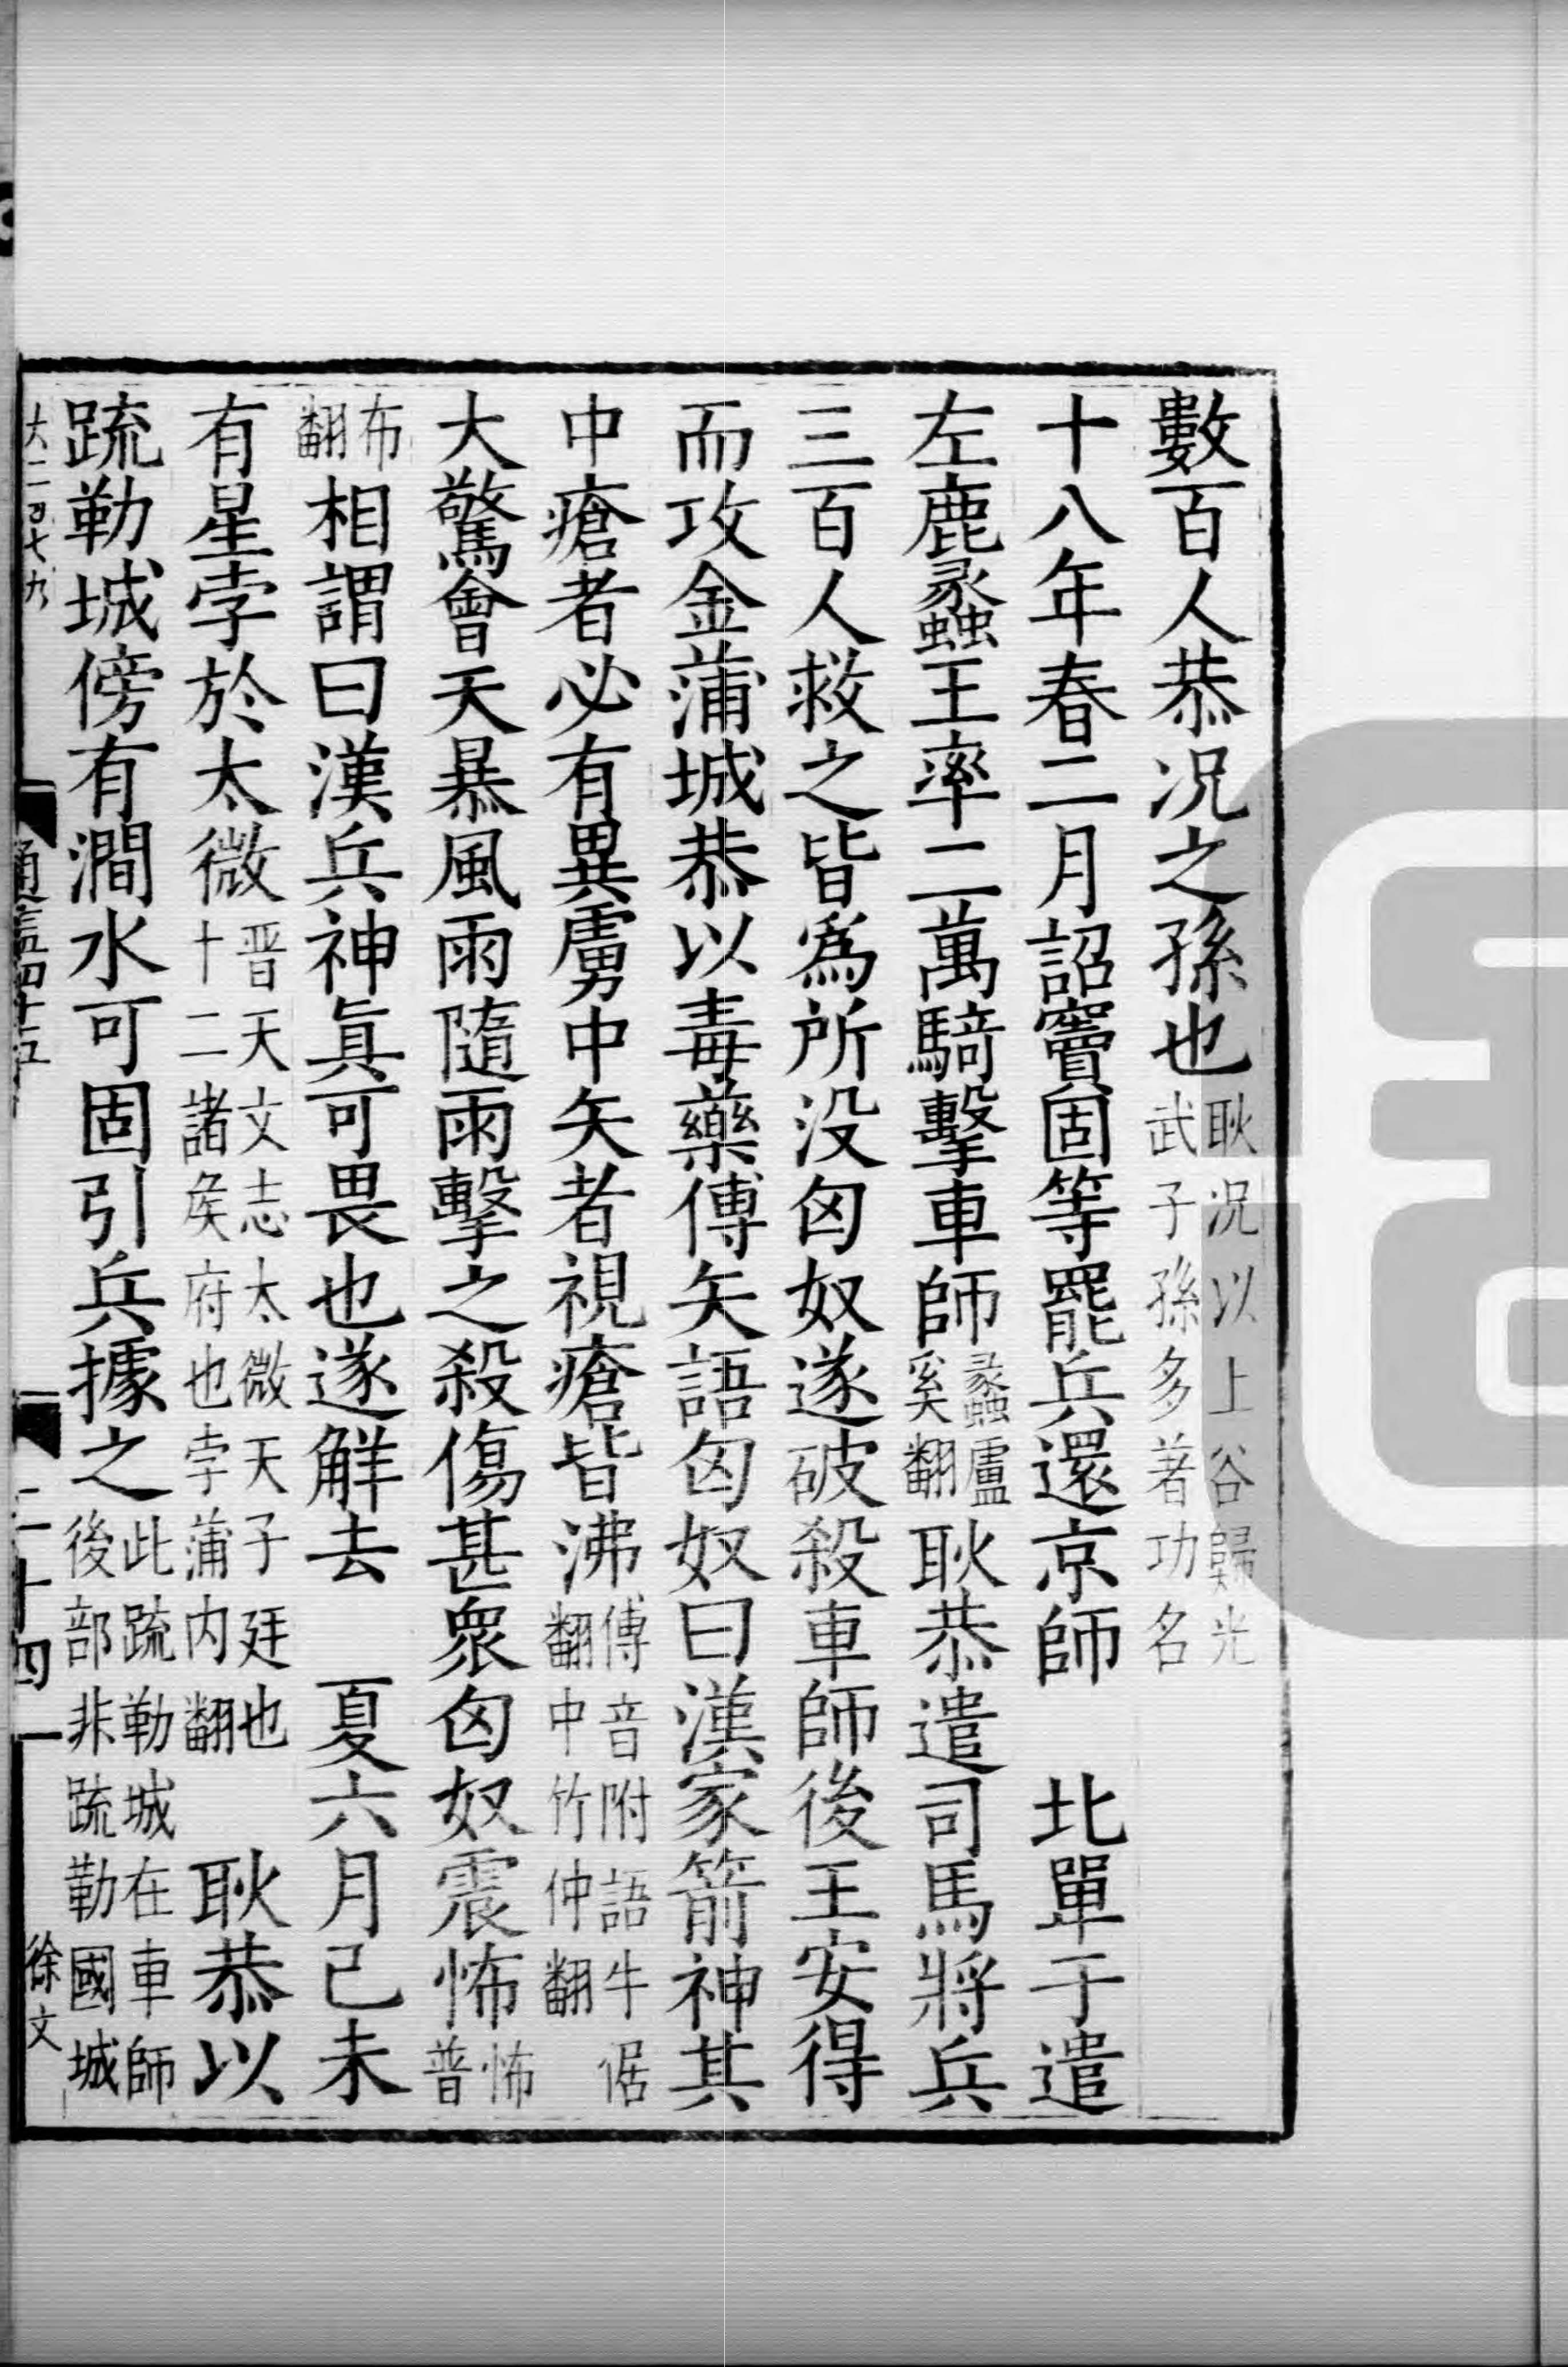 數百人恭况之孫也耿况以上谷歸光武子孫多著功名
十八年春二月詔竇固等罷兵還京師　北單于遣
左鹿蠡王率二萬騎擊車師蠡盧奚翻耿恭遣司馬將兵
三百人救之皆爲所没匈奴遂破殺車師後王安得
而攻金蒲城恭以毒藥傅矢語匈奴曰漢家箭神其
中瘡者必有異虜中矢者視瘡皆沸傅音附語牛倨翻中竹仲翻
大驚會天暴風雨隨雨擊之殺傷甚衆匈奴震怖怖普
布翻相謂曰漢兵神眞可畏也遂解去　夏六月己未
有星孛於太微晋天文志太微天子廷也十二諸矦府也孛蒲内翻　耿恭以
疏勒城傍有澗水可固引兵據之此疏勒城在車師後部非疏勒國城
大二百七九　通鑑四十五　二十四　徐文